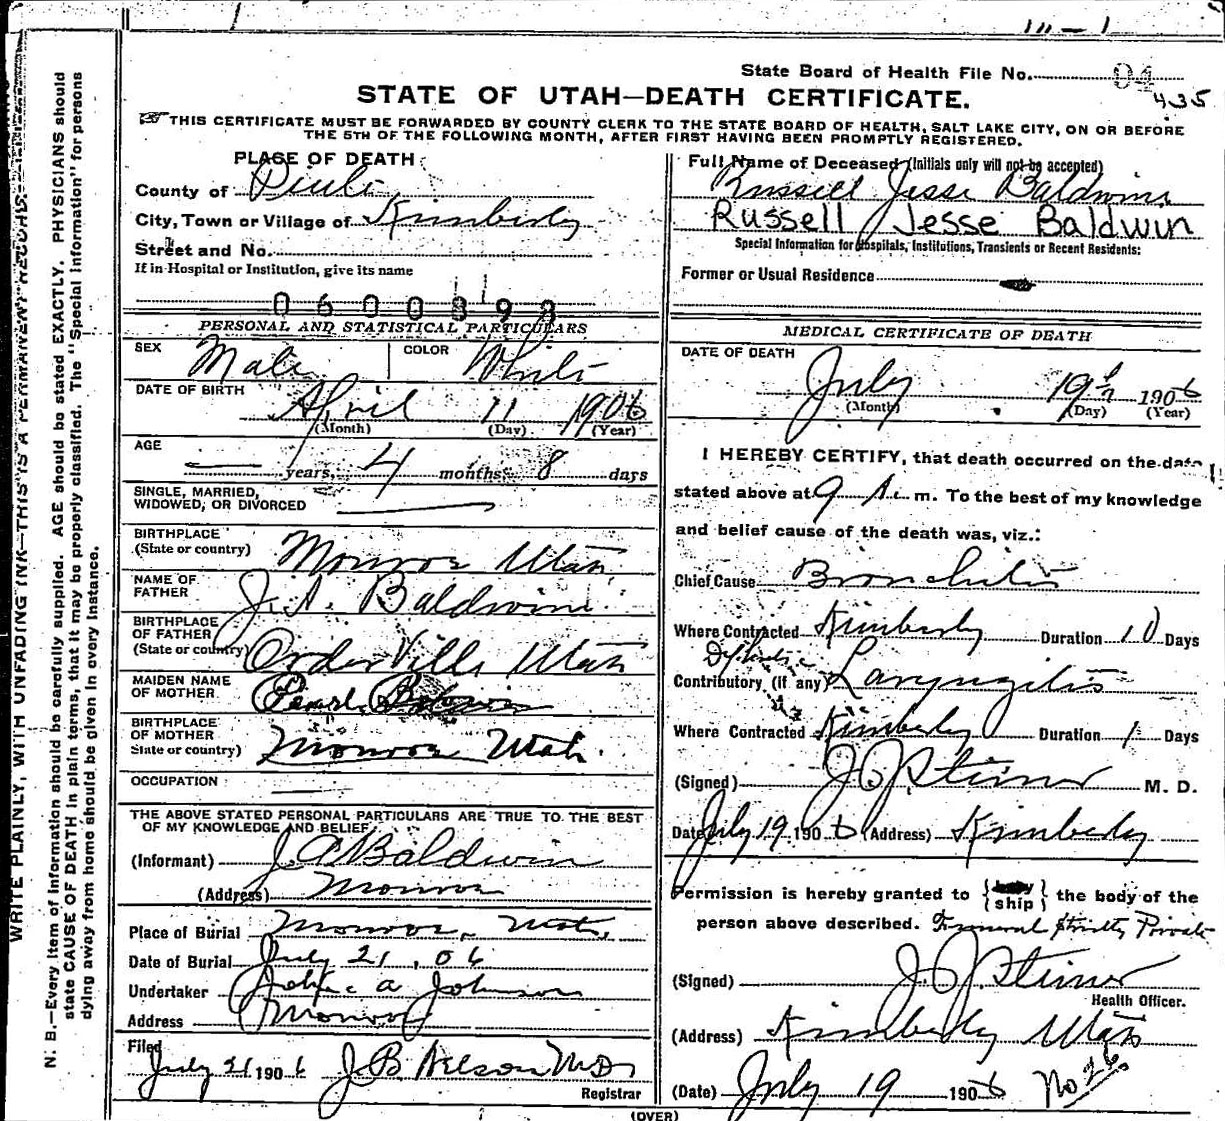 III – 1
State Board of Health File No. 94
435
STATE OF UTAH—DEATH CERTIFICATE.
THIS CERTIFICATE MUST BE FORWARDED BY COUNTY CLERK TO THE STATE BOARD OF HEALTH, SALT LAKE CITY, ON OR BEFORE
THE 5TH OF THE FOLLOWING MONTH, AFTER FIRST HAVING BEEN PROMPTLY REGISTERED.
PLACE OF DEATH
County of Piute
City, Town or Village of Kimberly
Street and No.
If in Hospital or Institution, give its name
0600893
PERSONAL AND STATISTICAL PARTICULARS
SEX Male COLOR White
DATE OF BIRTH April 11 1906
(Month) (Day) (Year)
AGE — years 4 months 8 days
SINGLE, MARRIED,
WIDOWED, OR DIVORCED
BIRTHPLACE
(State or country) Monroe Utah
NAME OF
FATHER J. A. Baldwin
BIRTHPLACE
OF FATHER
(State or country) Orderville Utah
MAIDEN NAME
OF MOTHER Pearl
BIRTHPLACE
OF MOTHER
State or country) Monroe Utah.
OCCUPATION
THE ABOVE STATED PERSONAL PARTICULARS ARE TRUE TO THE BEST
OF MY KNOWLEDGE AND BELIEF.
(Informant) J A Baldwin
(Address) Monroe
Place of Burial Monroe, Utah,
Date of Burial July 21, 06
Undertaker a Johnson
Address Monroe
Filed
July 21 1906 J. B. Nelson M.D.
Registrar
Full Name of Deceased (Initials only will not be accepted)
Russell Jesse Baldwin
Russell Jesse Baldwin
Special Information for Hospitals, Institutions, Transients or Recent Residents:
Former or Usual Residence
MEDICAL CERTIFICATE OF DEATH
DATE OF DEATH
July 19 1906
(Month) (Day) (Year)
I HEREBY CERTIFY, that death occurred on the date
stated above at 9 A. m. To the best of my knowledge
and belief cause of the death was, viz.:
Chief Cause Bronchitis
Where Contracted Kimberly Duration 10 Days
Contributory (if any) Laryngitis
Where Contracted Kimberly Duration 1 Days
(Signed) J C Steiner M. D.
Date July 19 1906 (Address) Kimberly
Permission is hereby granted to {bury ship} the body of the
person above described. Funeral Strictly Private
(Signed) J. C. Steiner
Health Officer.
(Address) Kimberly Utah
(Date) July 19 1906 No 26
(OVER)
WRITE PLAINLY, WITH UNFADING INK—THIS IS A PERMANENT RECORD.
N. B.—Every item of information should be carefully supplied. AGE should be stated EXACTLY. PHYSICIANS should
state CAUSE OF DEATH in plain terms, that it may be properly classified. The "Special Information" for persons
dying away from home should be given in every instance.